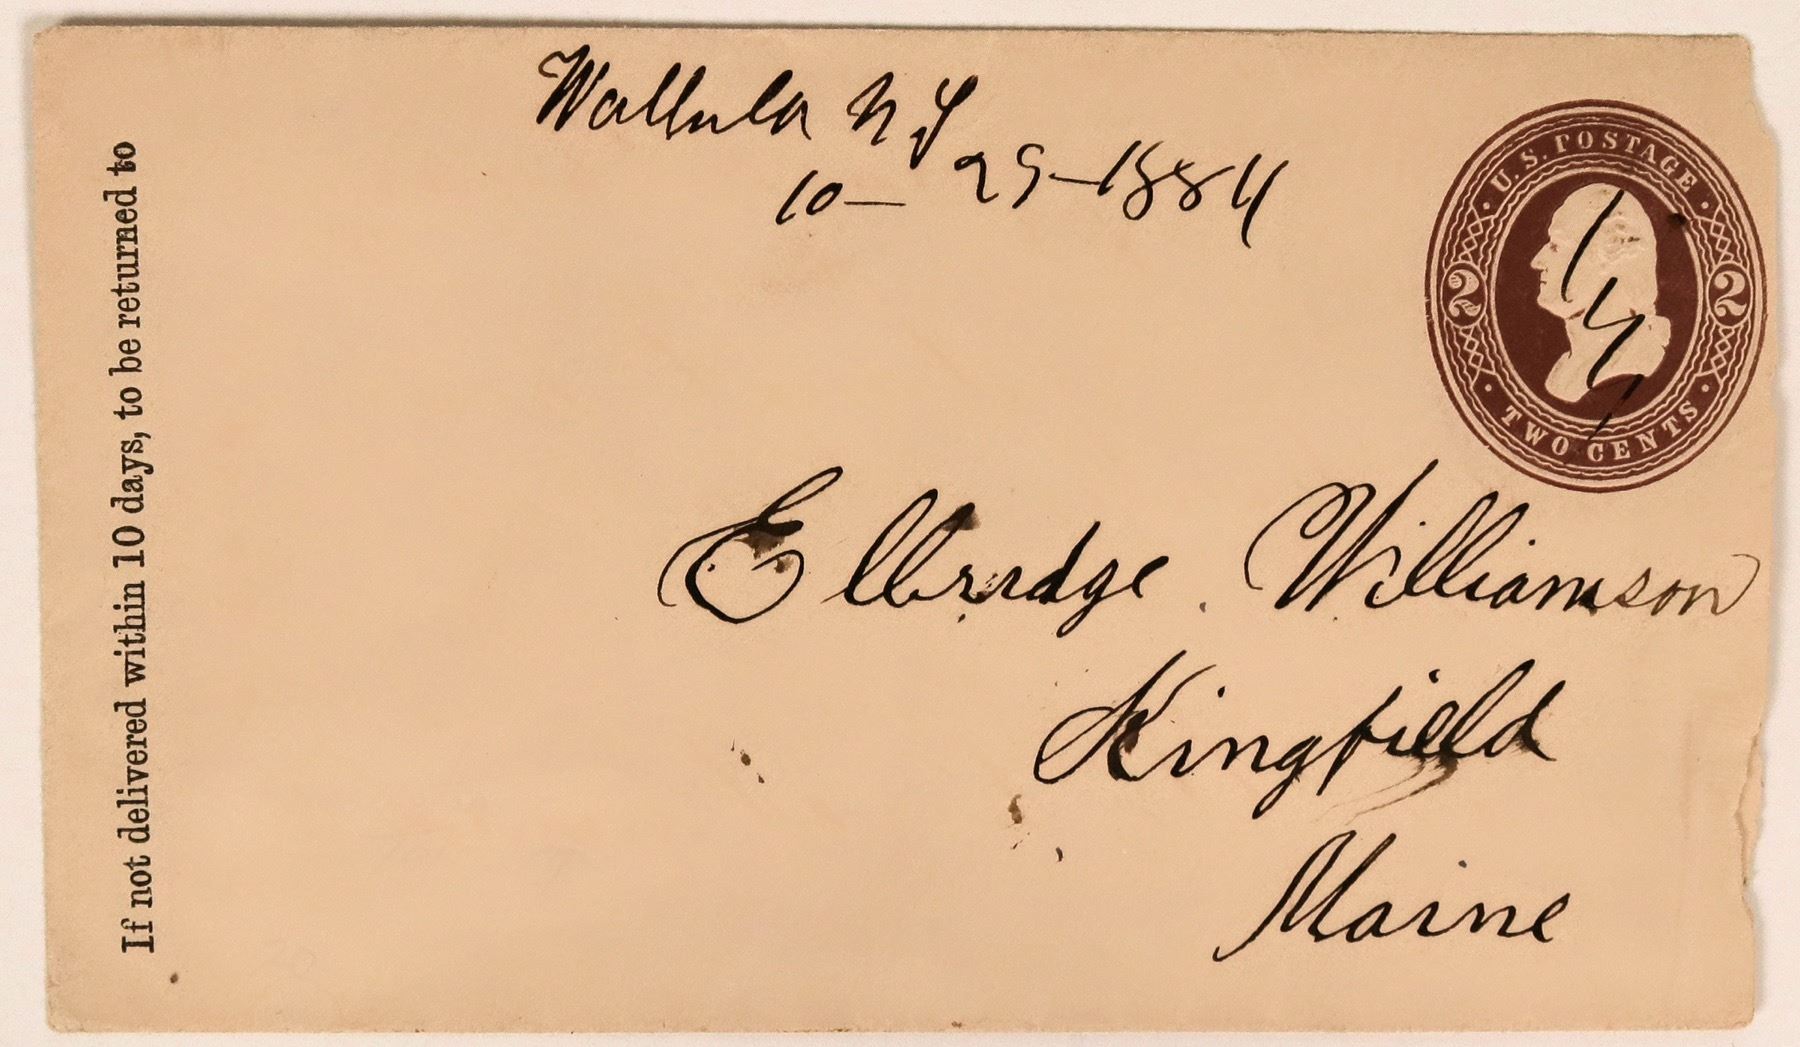 Wallula W T
10 - 29 - 1884
U.S. POSTAGE
2 2
TWO CENTS
Elbridge Williamson
Kingfield
Maine
If not delivered within 10 days, to be returned to